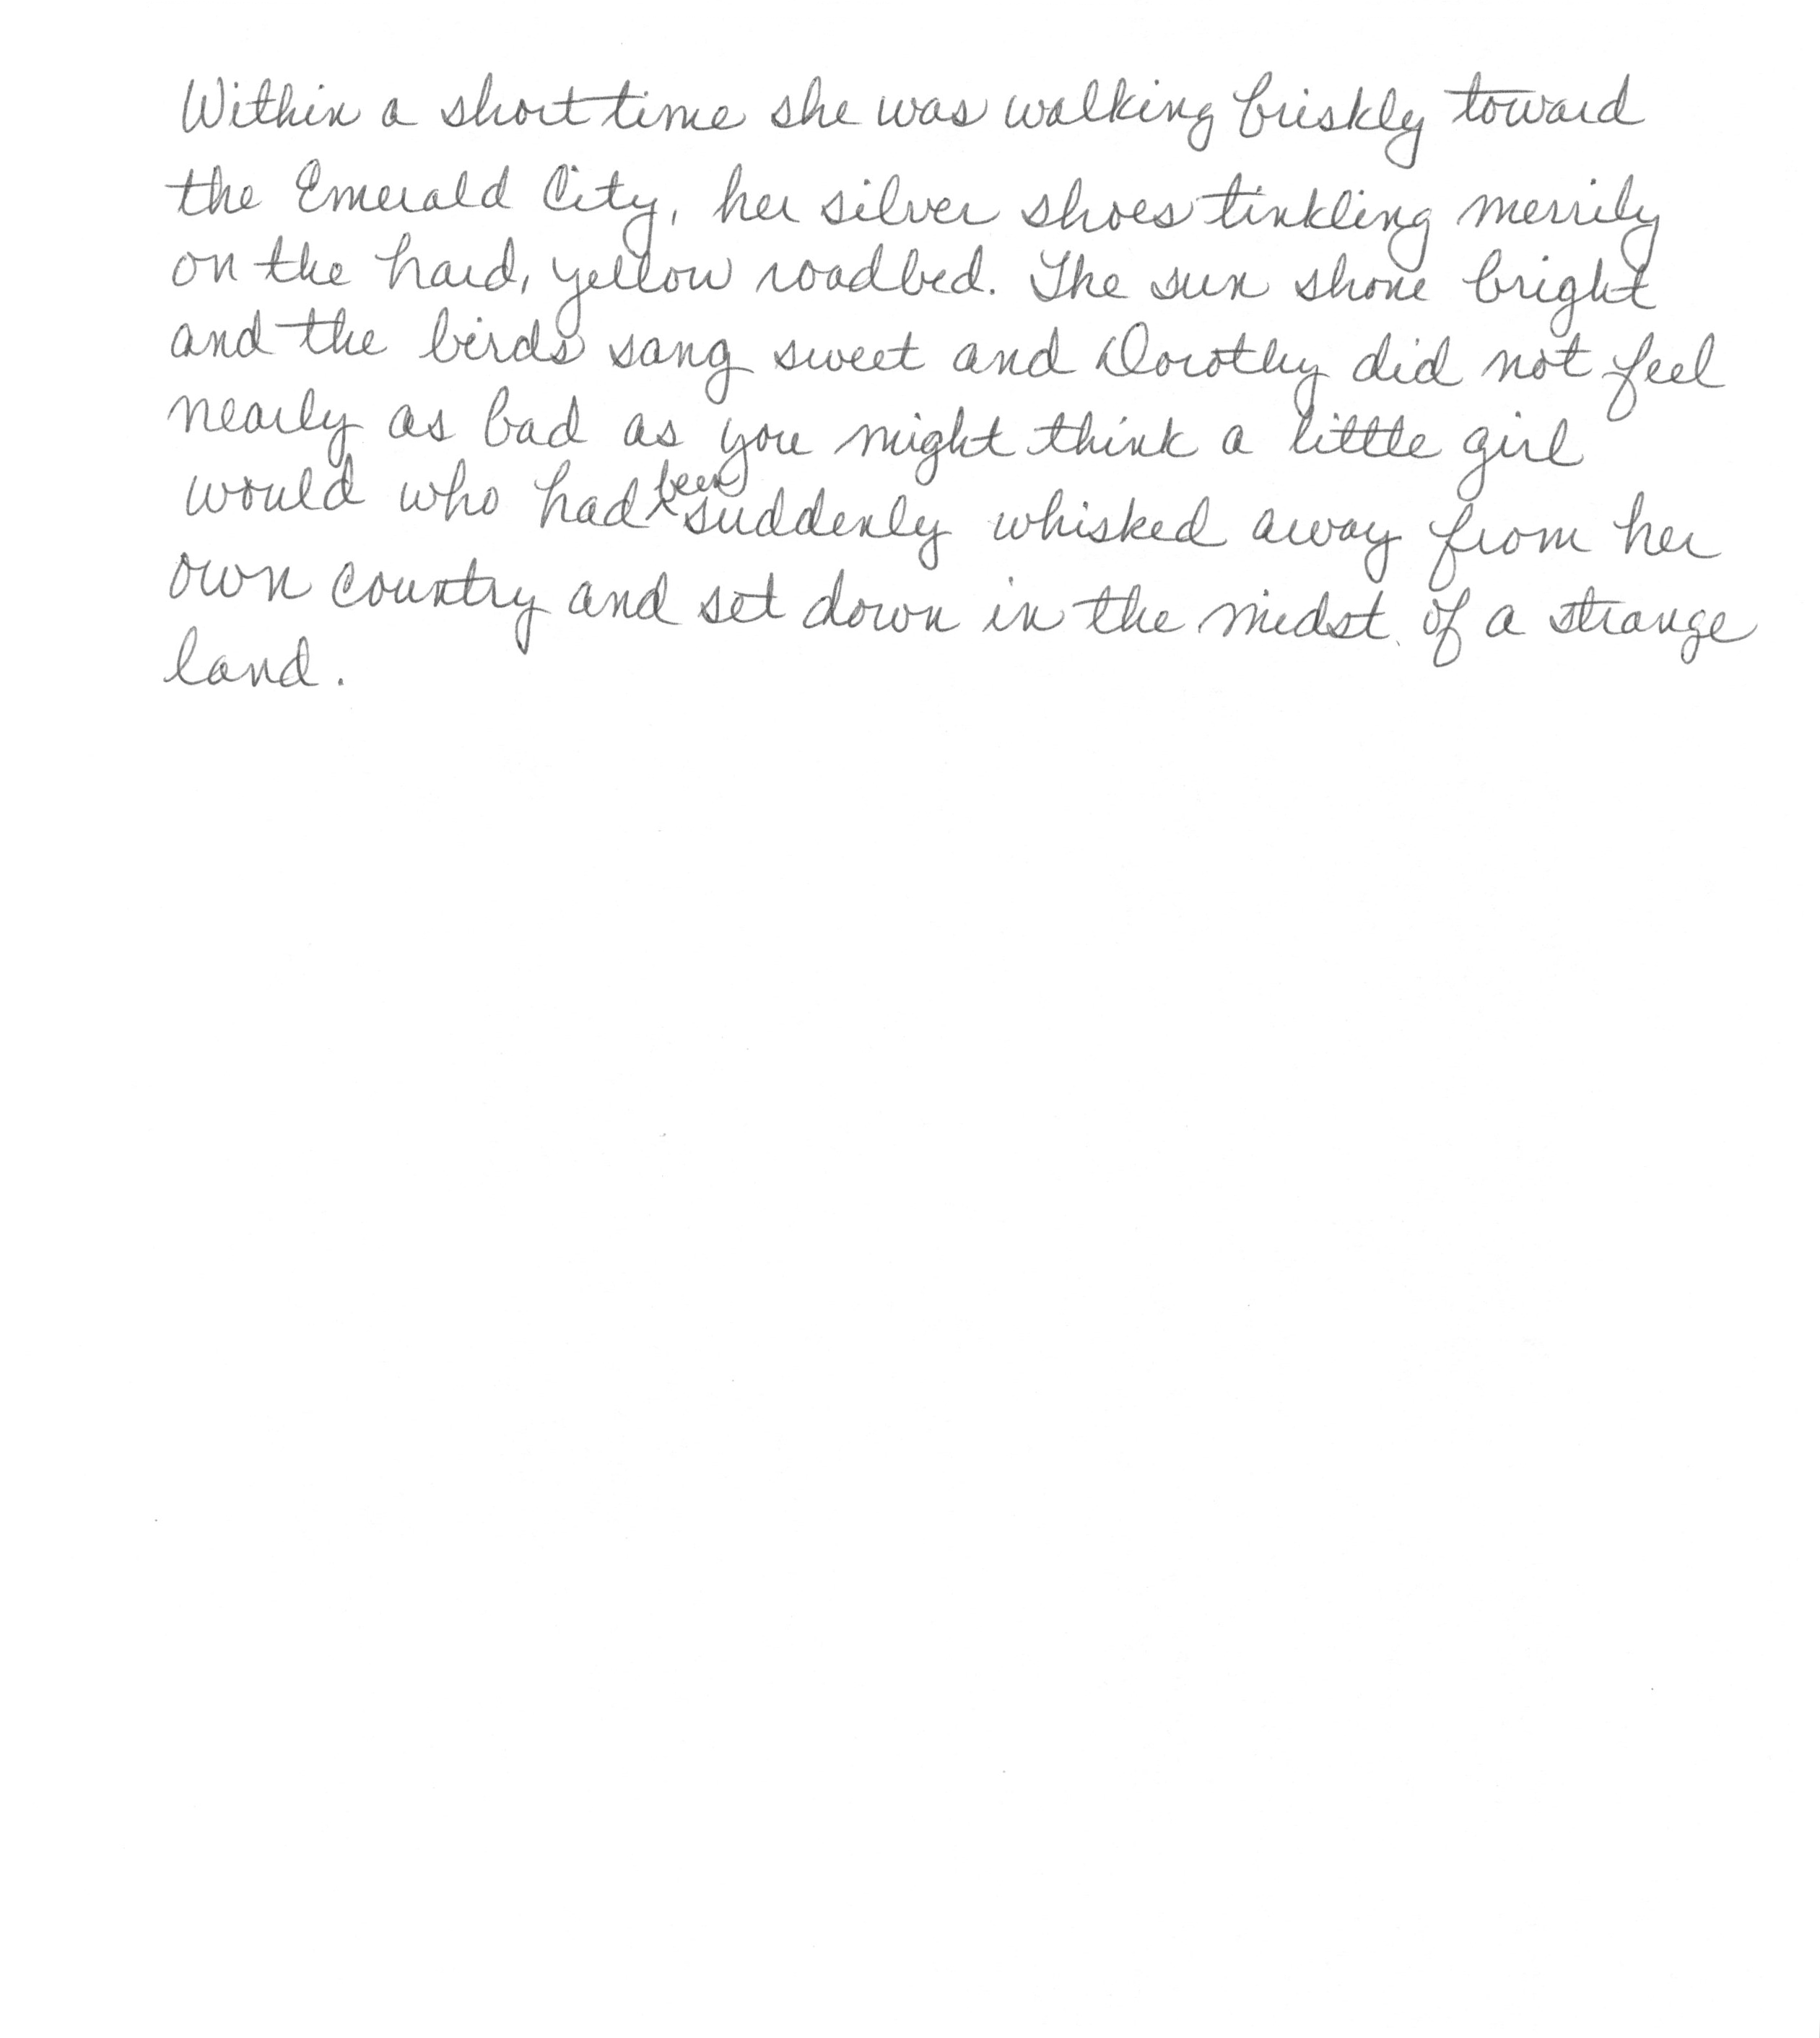 Within a short time she was walking briskly toward
the Emerald City, her silver shoes tinkling merrily
on the hard, yellow roadbed. The sun shone bright
and the birds sang sweet and Dorothy did not feel
nearly as bad as you might think a little girl
would who had been suddenly whisked away from her
own country and set down in the midst of a strange
land.